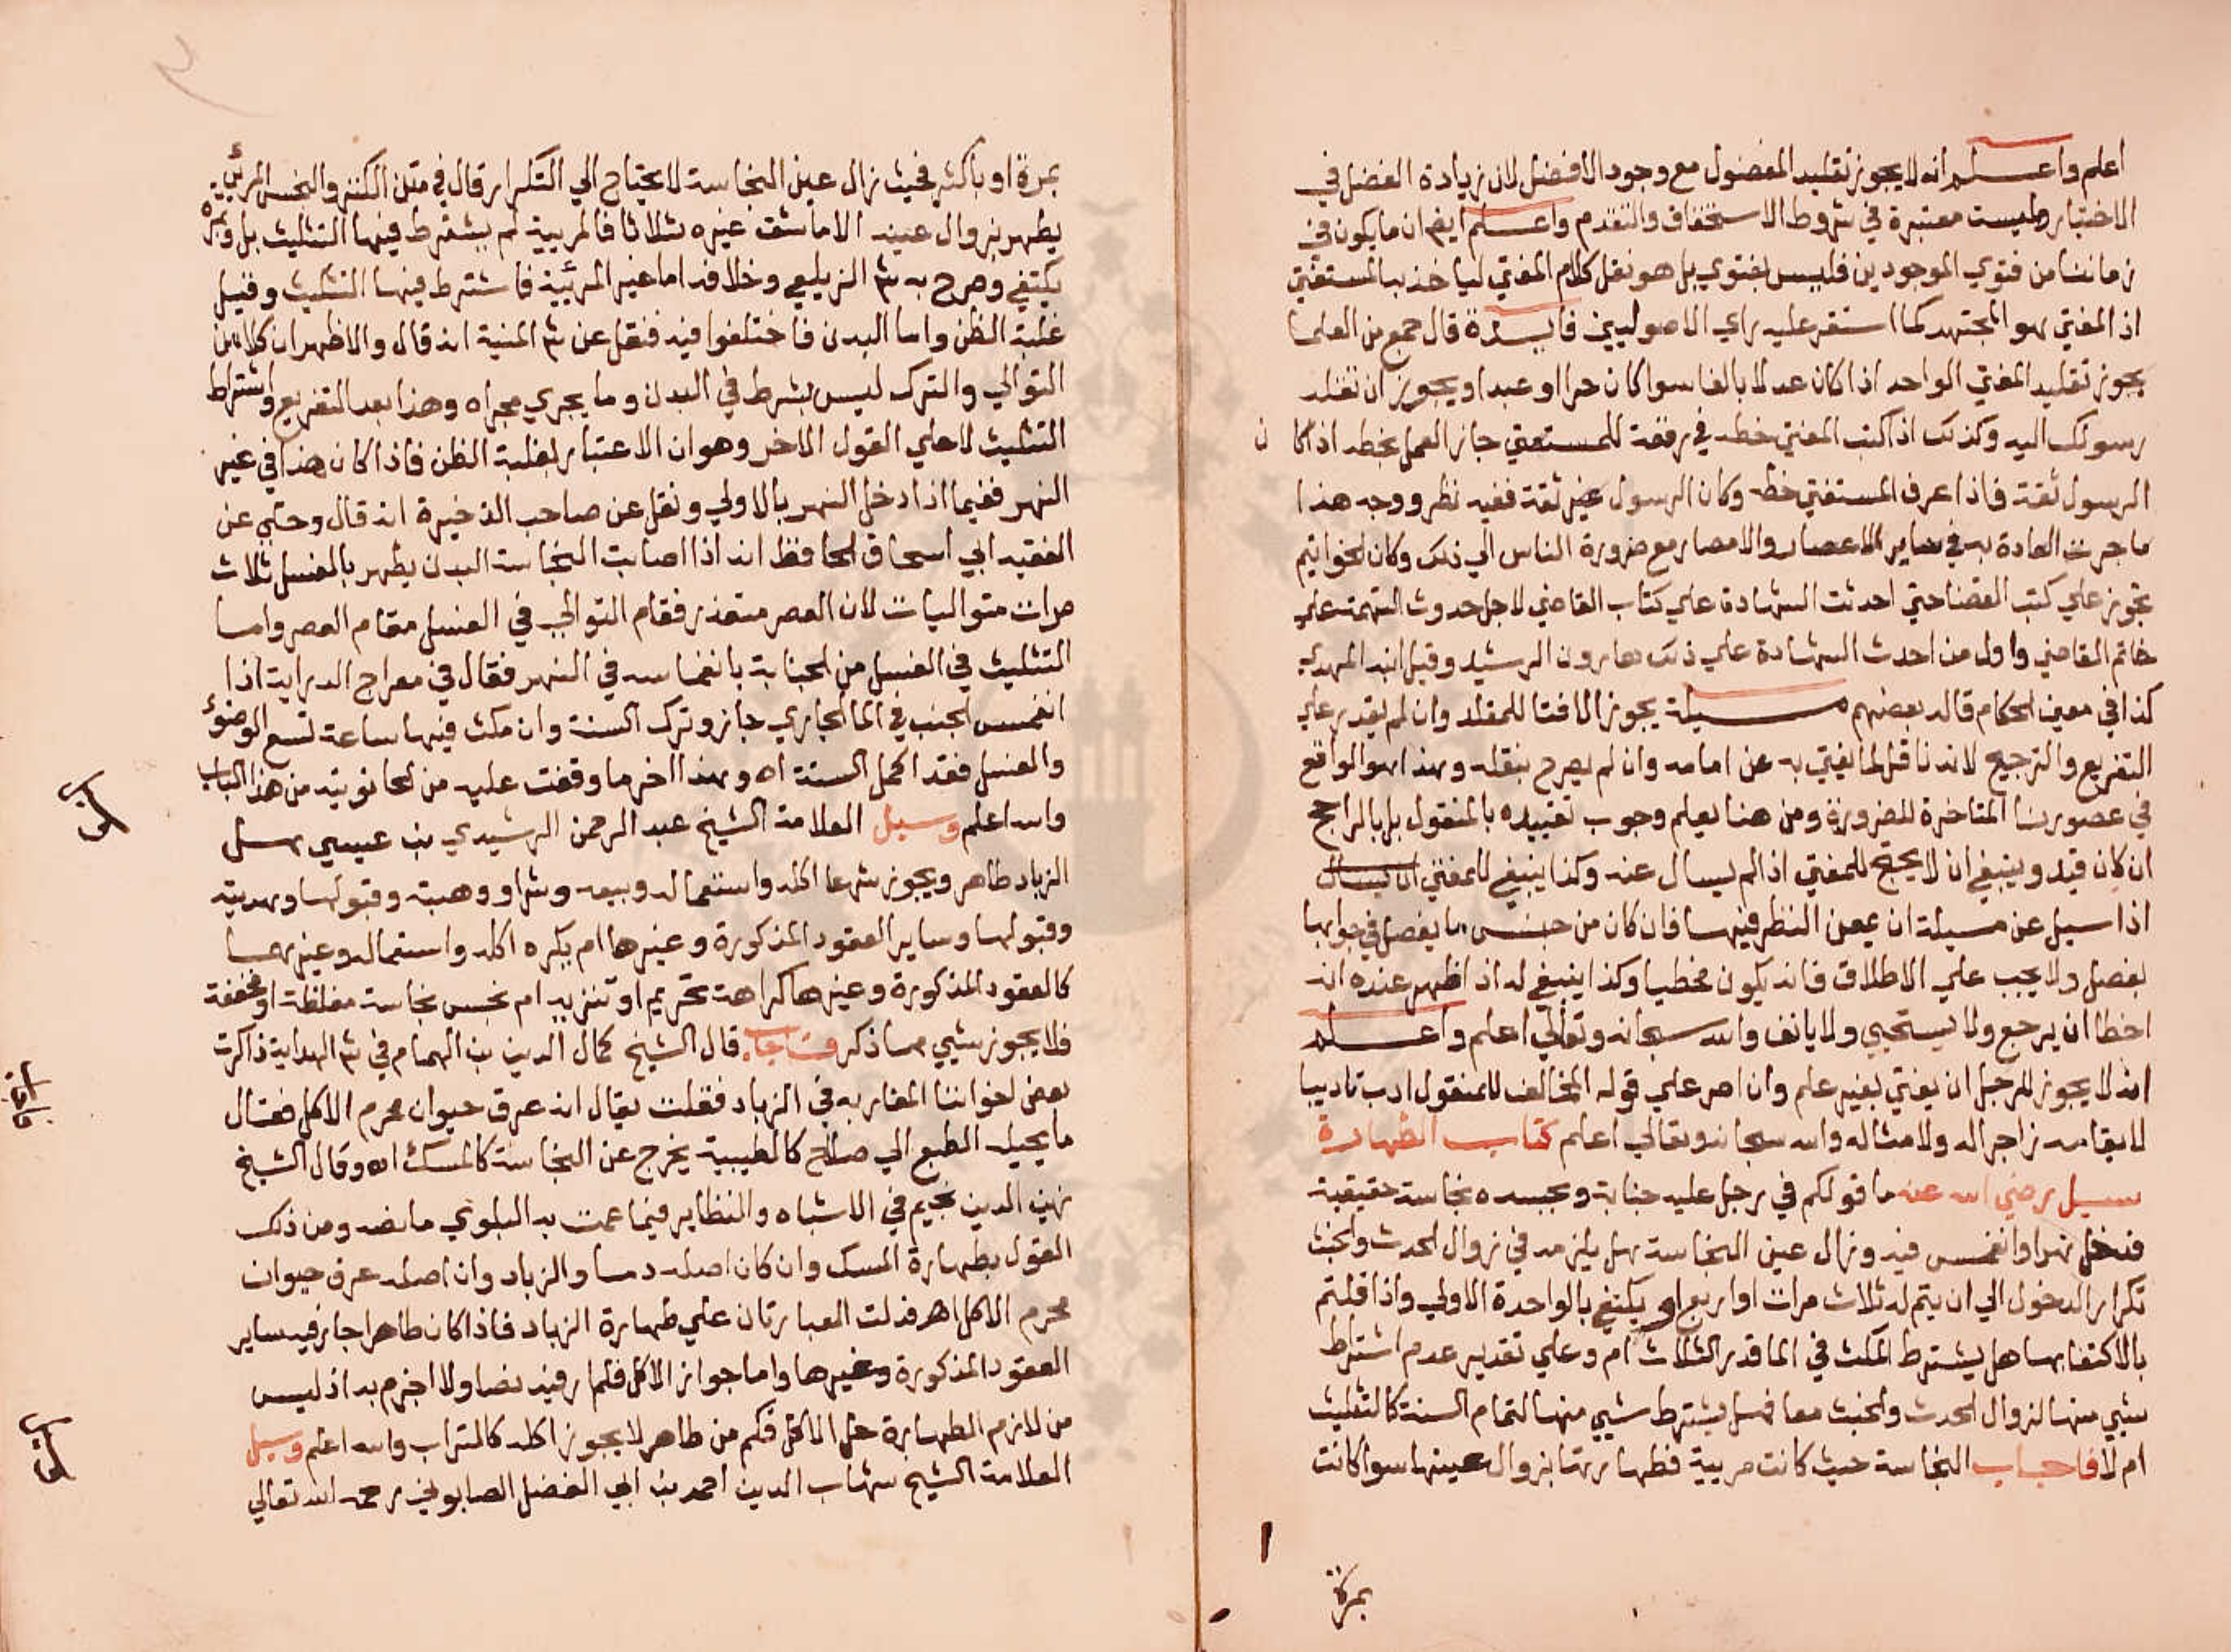 اعلم واعلم انه لا يجوز تقليد المفضول مع وجود الافضل لان زيادة الفضل في
الاختيار وليست معتبرة في شروط الاستحقاق والتقدم واعلم ايضا ان ما يكون في
زماننا من فتوي الموجودين فليس بفتوي بل هو نقل كلام المفتي لياخذ به المستفتي
اذ المفتي هو المجتهد كما استقر عليه راي الاصوليين فايدة قال جمع من العلما
يجوز تقليد المفتي الواحد اذا كان عدلا بالغا سوا كان حرا او عبدا ويجوز ان تقلد
رسولك اليه وكذلك اذا كتب المفتي خطه في رقعة للمستفتي جاز العمل بخطه اذا كان
الرسول ثقة فاذا عرف المستفتي خطه وكان الرسول غير ثقة ففيه نظر ووجه هذا
ما جرت العادة به في ساير الاعصار والامصار مع ضرورة الناس الي ذلك وكان الخواتيم
تجوز علي كتب القضا حتي احدثت الشهادة علي كتاب القاضي لاجل حدوث التهمة علي
خاتم القاضي واول من احدث الشهادة علي ذلك هارون الرشيد وقيل ابنه المهدي
كذا في معين الحكام قاله بعضهم مسيلة يجوز الافتا للمقلد وان لم يقدر علي
التفريع والترجيح لانه ناقل لما يفتي به عن امامه وان لم يصرح بنقله وهذا هو الواقع
في عصورنا المتاخرة للضرورة ومن هنا يعلم وجوب تقييده بالمنقول بل بالراجح
ان كان قيد وينبغي ان لا يحتج للمفتي اذ الم يسال عنه وكذا ينبغي للمفتي ان يسال
اذا سيل عن مسيلة ان يمعن النظر فيها فان كان من جنس ما يفصل في جوابها
يفصل ولا يجب علي الاطلاق فانه يكون مخطيا وكذا ينبغي له اذ اظهر عنده انه
اخطا ان يرجع ولا يستحيي ولا يانف والله سبحانه وتعالي اعلم واعلم
انه لا يجوز للرجل ان يفتي بغير علم وان اصر علي قوله المخالف للمنقول ادب تاديبا
لايقا به زاجرا له ولامثاله والله سبحانه وتعالي اعلم كتاب الطهارة
سيل رضي الله عنه ما قولكم في رجل عليه جنابة وبجسده نجاسة حقيقية
فدخل نهرا وانغمس فيه وزال عين النجاسة هل يلزمه في زوال الحدث والخبث
تكرار الدخول الي ان يتم له ثلاث مرات او اربع او يكتفي بالواحدة الاولي واذا قلتم
بالاكتفا بها هل يشترط المكث في الما قدر الثلاث ام وعلي تقدير عدم اشتراط
شيي منها لزوال الحدث والخبث معا فهل يشترط شيي منها لتمام السنة كالتثليث
ام لا فاجاب النجاسة حيث كانت مريية فطهارتها بزوال عينها سوا كانت
بمرة
بمرة او باكثر فحيث زال عين النجاسة لا يحتاج الي التكرار قال في متن الكنز والنجس المرئي
يطهر بزوال عينه الا ما شق وغيره ثلاثا فالمريية لم يشترط فيها التثليث بل وبمرة
يكتفي وصرح به شر الزيلعي وخلافه اما غير المرئية فاشترط فيها التثليث وقيل
غلبة الظن واما البدن فاختلفوا فيه فنقل عن شر المنية انه قال والاظهر ان كلا من
التوالي والترك ليس بشرط في البدن وما يجري مجراه وهذا بعد التفريع واشتراط
التثليث لا علي القول الاخر وهو ان الاعتبار لغلبة الظن فاذا كان هذا في غير
النهر ففيما اذا دخل النهر بالاولي ونقل عن صاحب الذخيرة انه قال وحكي عن
الفقيه ابي اسحاق الحافظ انه اذا اصابت النجاسة البدن يطهر بالغسل ثلاث
مرات متواليات لان العصر متعذر فقام التوالي في الغسل مقام العصر واما
التثليث في الغسل من الجنابة بانغماسه في النهر فقال في معراج الدراية اذا
انغمس الجنب في الما الجاري جاز وترك السنة وان مكث فيها ساعة تسع الوضوء
والغسل فقد اكمل السنة اه وهذا اخر ما وقفت عليه من الحانوتية من هذا الباب
والله اعلم وسيل العلامة الشيخ عبد الرحمن الرشيدي بن عيسي هل
الزباد طاهر ويجوز شرعا اكله واستعماله وبيعه وشراوه وهبته وقبولها وهديته
وقبولها وساير العقود المذكورة وغيرها ام يكره اكله واستعماله وغيرهما
كالعقود المذكورة وغيرها كراهة تحريم او تنزيه ام نجس نجاسة مغلظة او مخففة
فلا يجوز شيي مما ذكر فاجاب قال الشيخ كمال الدين بن الهمام في شر الهداية ذاكرت
بعض اخواننا المغاربه في الزباد فقلت يقال انه عرق حيوان محرم الاكل فقال
ما يحيله الطبع الي صلاح كالطيبية يخرج عن النجاسة كالمسك اه وقال الشيخ
زين الدين نجيم في الاشباه والنظاير فيما عمت به البلوي ما نصه ومن ذلك
القول بطهارة المسك وان كان اصله دما والزباد وان اصله عرق حيوان
محرم الاكل اهر فدلت العبارتان علي طهارة الزباد فاذا كان طاهرا جاز فيه ساير
العقود المذكورة وغيرها واما جواز الاكل فلم ار فيه نصا ولا اجزم به اذ ليس
من لازم الطهارة حل الاكل فكم من طاهر لا يجوز اكله كالتراب والله اعلم وسيل
العلامة الشيخ شهاب الدين احمد بن ابي الفضل الصابوني رحمه الله تعالي